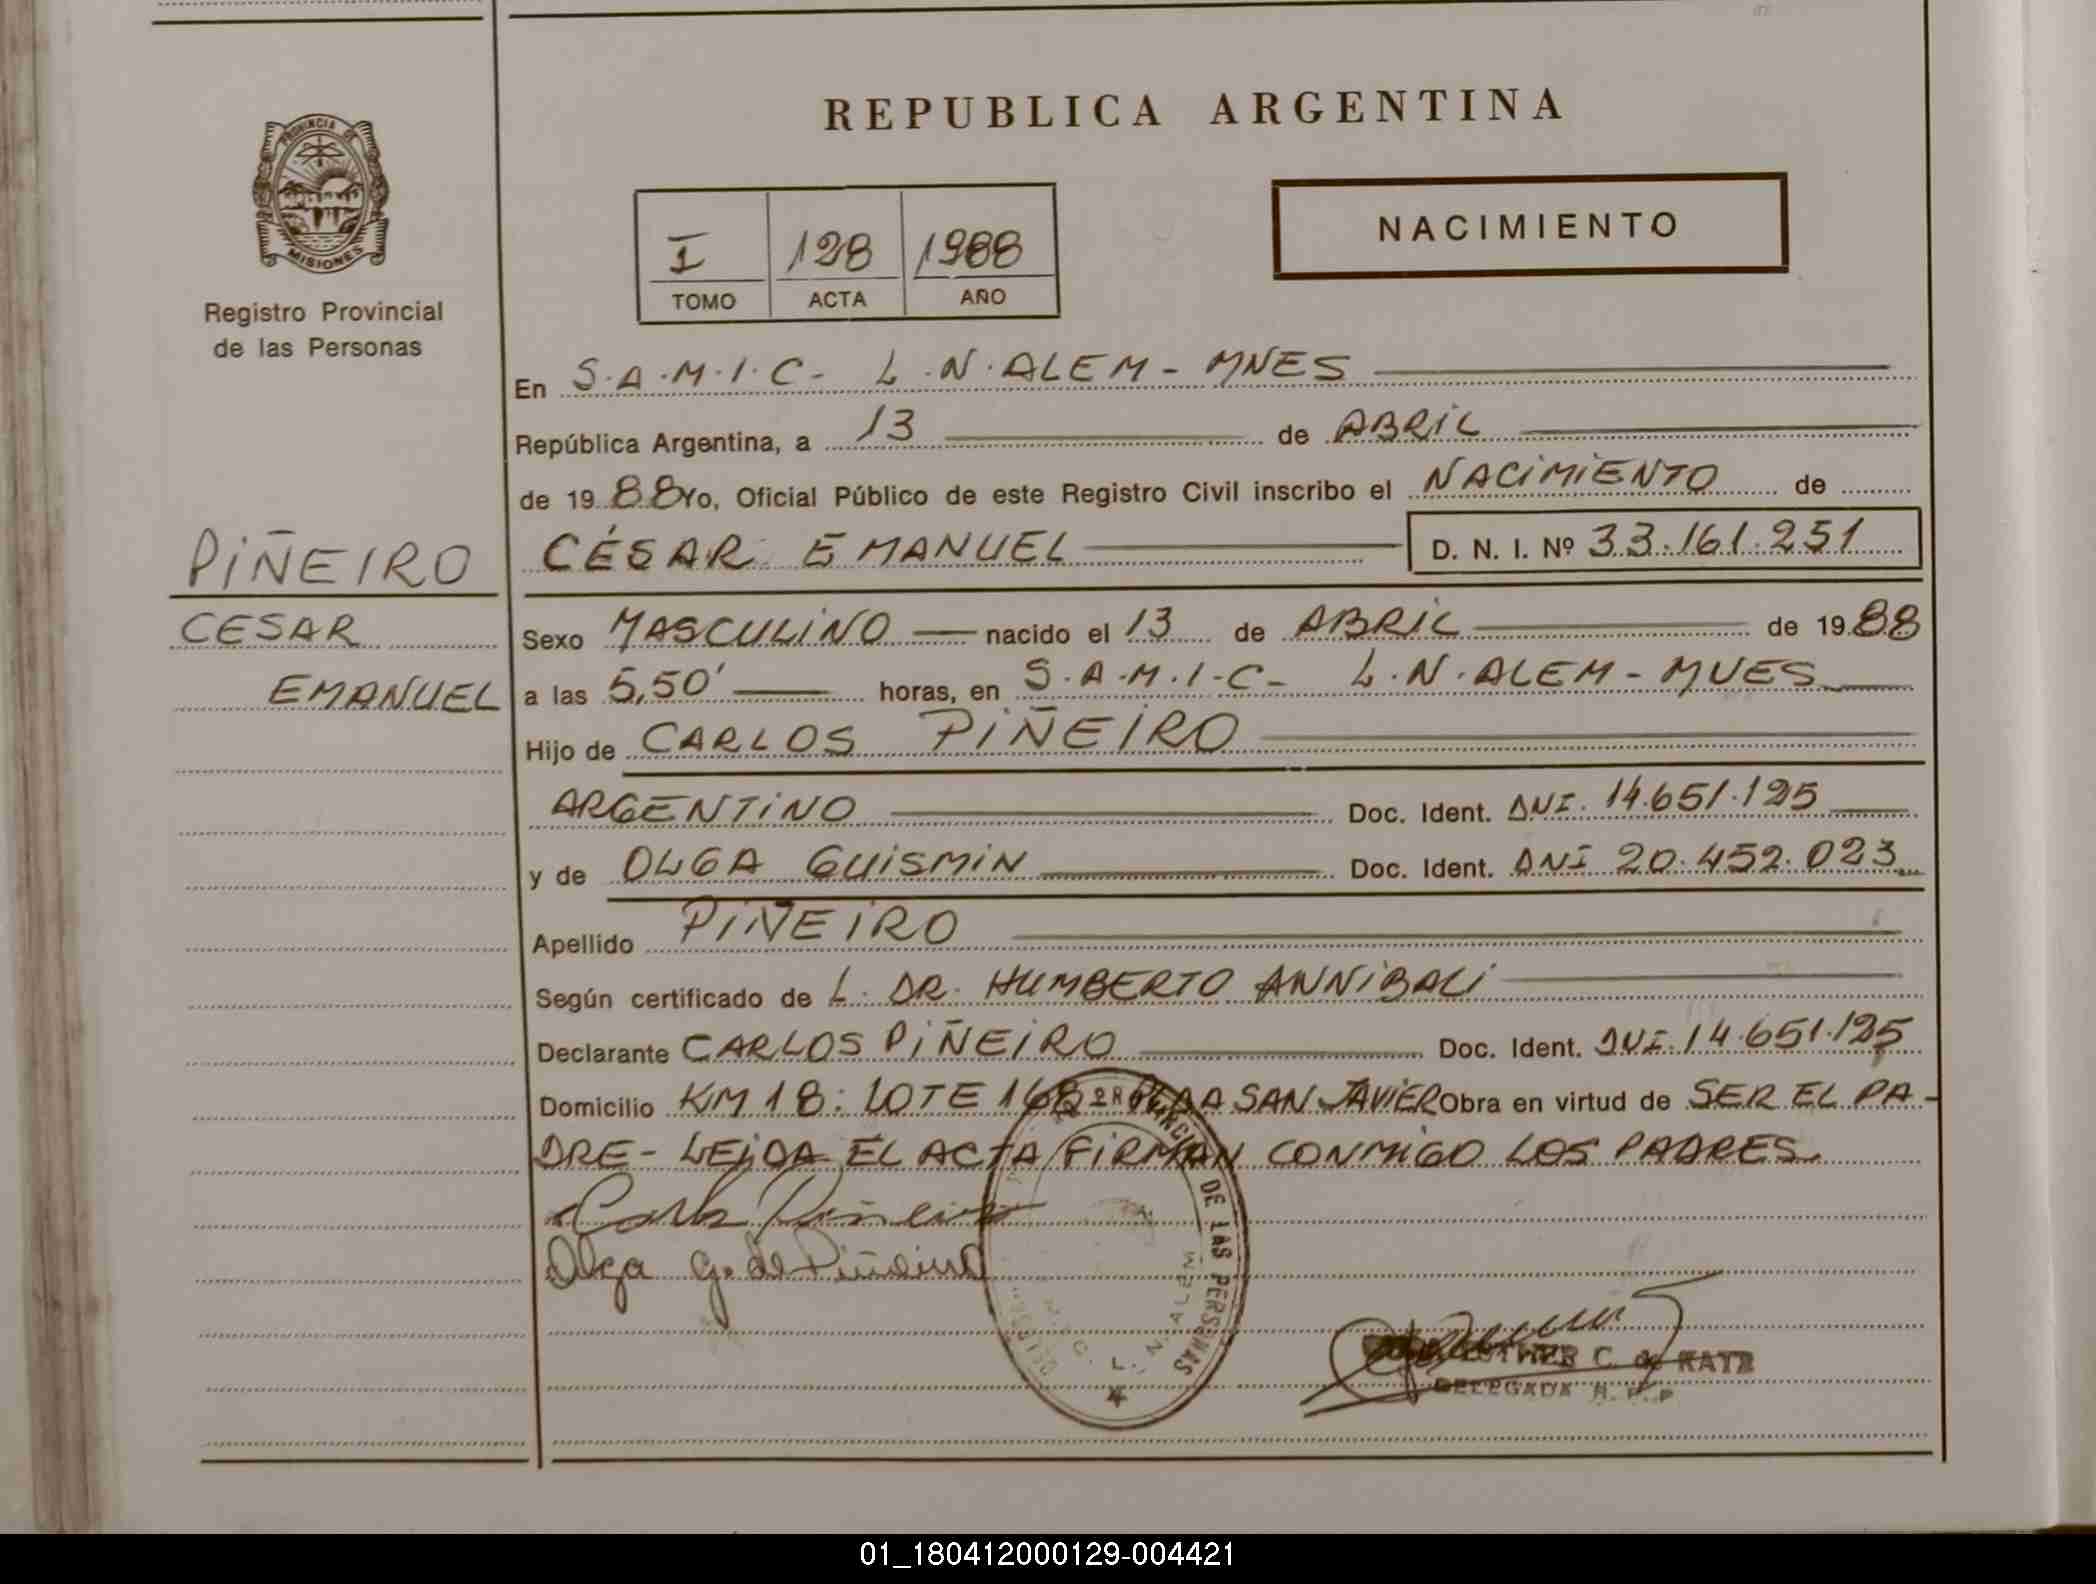 REPUBLICA ARGENTINA
PROVINCIA DE
MISIONES
Registro Provincial
de las Personas
I 128 1988
TOMO ACTA AÑO
NACIMIENTO
En S.A.M.I.C- L.N.ALEM- MNES
República Argentina, a 13 de ABRIL
de 19 88 Yo, Oficial Público de este Registro Civil inscribo el NACIMIENTO de
PIÑEIRO
CESAR
EMANUEL
CÉSAR EMANUEL D. N. I. Nº 33.161.251
Sexo MASCULINO nacido el 13 de ABRIL de 19 88
a las 5,50' horas, en S.A.M.I.C- L.N.ALEM- MNES
Hijo de CARLOS PIÑEIRO
ARGENTINO Doc. Ident. DNI. 14.651.195
y de OLGA GUISMIN Doc. Ident. DNI 20.452.023
Apellido PIÑEIRO
Según certificado de L. DR. HUMBERTO ANNIBALI
Declarante CARLOS PIÑEIRO Doc. Ident. DNI. 14.651.195
Domicilio KM 18: LOTE 168 SAN JAVIER Obra en virtud de SER EL PA-
DRE- LEIDA EL ACTA FIRMAN CONMIGO LOS PADRES.
Carlos Piñeiro
Olga G. de Piñeiro
DE LAS PERSONAS
L. N. ALEM
ESTHER C. de
DELEGADA R. P. P
01_180412000129-004421